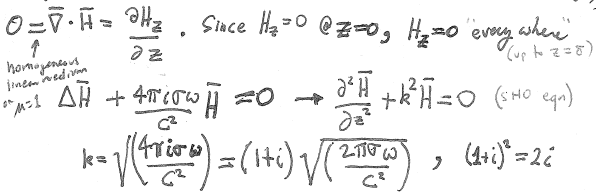 0 = ∇̄ · H̄ = ∂H_z/∂z . Since H_z = 0 @ z = 0, H_z = 0 "everywhere"
(up to z = δ)
↑
homogeneous
linear medium
or μ=1
ΔH̄ + 4πiσω/c² H̄ = 0 → ∂²H̄/∂z² + k²H̄ = 0 (SHO eqn)
k = √(4πiσω/c²) = (1+i) √(2πσω/c²) , (1+i)² = 2i